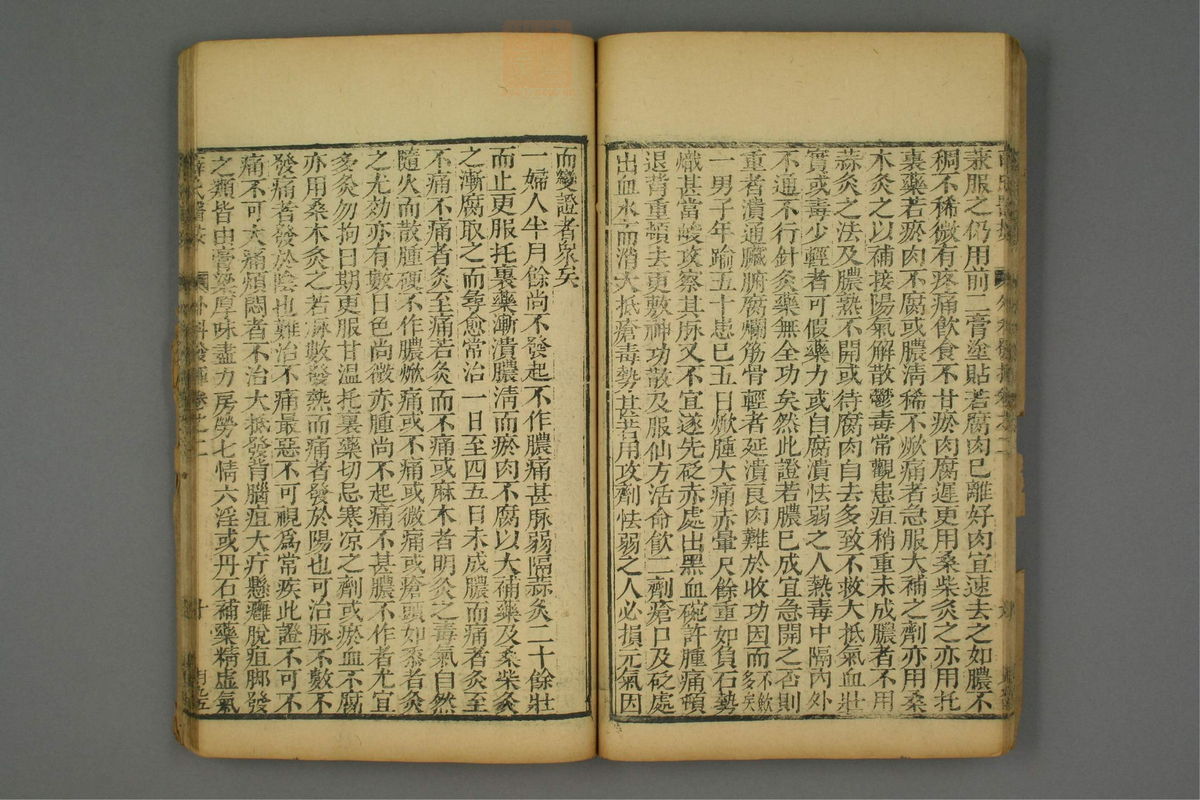 藥服之仍用前二膏塗貼若腐肉已離好肉宜速去之如膿不
稠不稀微有疼痛飲食不甘瘀肉腐遲更用桑柴灸之亦用托
裏藥若瘀肉不腐或膿淸稀不焮痛者急服大補之劑亦用桑
木灸之以補接陽氣解散鬱毒常觀患疽稍重未成膿者不用
蒜灸之法及膿熟不開或待腐肉自去多致不救大抵氣血壯
實或毒少輕者可假藥力或自腐潰怯弱之人熱毒中隔內外
不通不行針灸藥無全功矣然此證若膿已成宜急開之否則
重者潰通臟腑腐爛筋骨輕者延潰良肉難於收功因而不斂多矣
一男子年踰五十患已五日焮腫大痛赤暈尺餘重如負石勢
熾甚當峻攻察其脉又不宜遂先砭赤處出黑血碗許腫痛頓
退背重頓去更敷神功散及服仙方活命飲二劑瘡口及砭處
出血水而消大抵瘡毒勢甚若用攻劑怯弱之人必損元氣因
而變證者衆矣
一婦人半月餘尚不發起不作膿痛甚脉弱隔蒜灸二十餘壯
而止更服托裏藥漸潰膿淸而瘀肉不腐以大補藥及桑柴灸
之漸腐取之而尋愈常治一日至四五日未成膿而痛者灸至
不痛不痛者灸至痛若灸而不痛或麻木者明灸之毒氣自然
隨火而散腫硬不作膿焮痛或不痛或微痛或瘡頭如黍者灸
之尤効亦有數日色尚微赤腫尚不起痛不甚膿不作者尤宜
多灸勿拘日期更服甘溫托裏藥切忌寒凉之劑或瘀血不腐
亦用桑木灸之若脉數發熱而痛者發於陽也可治脉不數不
發痛者發於陰也難治不痛最惡不可視爲常疾此證不可不
痛不可大痛煩悶者不治大抵發背腦疽大疔懸癰脫疽脚發
之類皆由膏粱厚味盡力房勞七情六淫或丹石補藥精虛氣
外科發揮卷之二
十